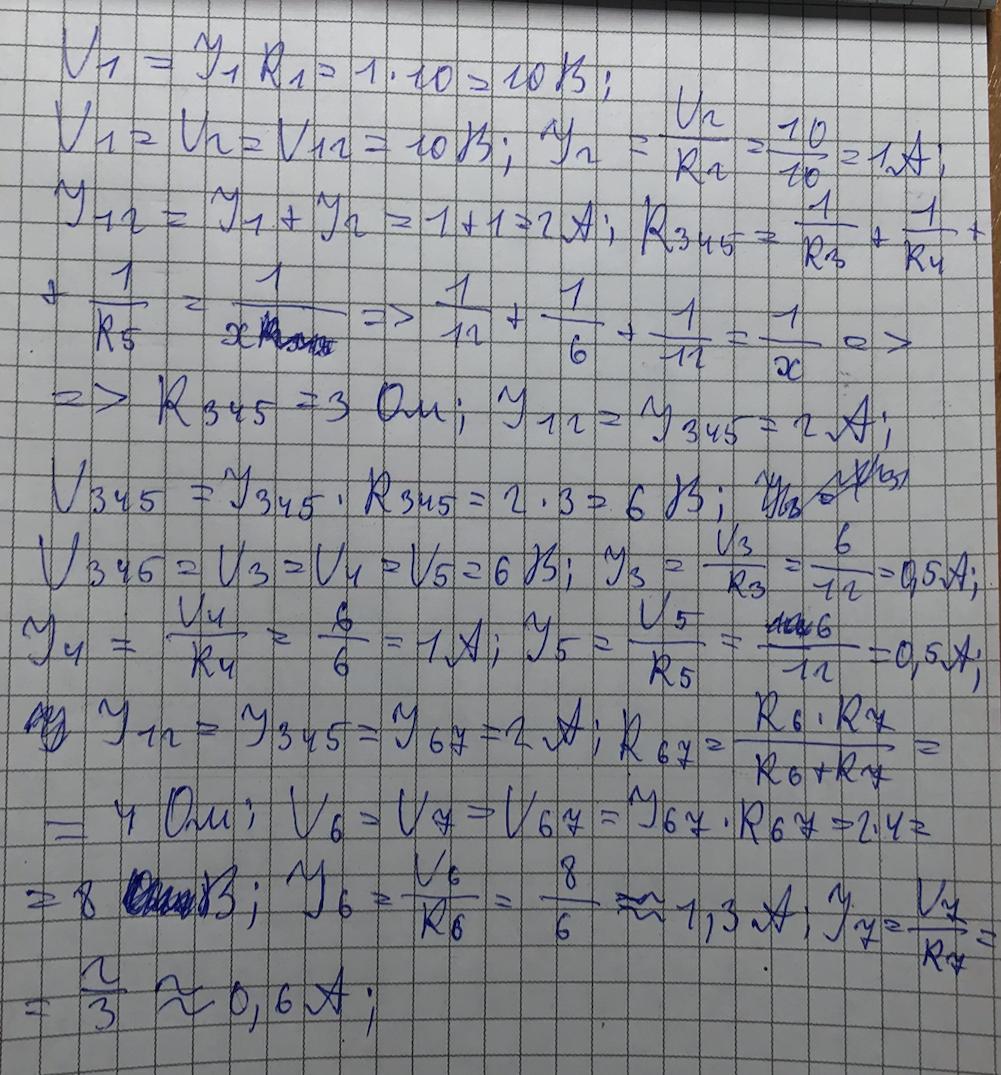 U₁ = Y₁ R₁ = 1 · 10 = 10 В;
U₁ = U₂ = U₁₂ = 10 В; Y₂ = U₂/R₂ = 10/10 = 1 А;
Y₁₂ = Y₁ + Y₂ = 1 + 1 = 2 А; R₃₄₅ = 1/R₃ + 1/R₄ +
+ 1/R₅ = 1/x => 1/12 + 1/6 + 1/12 = 1/x =>
=> R₃₄₅ = 3 Ом; Y₁₂ = Y₃₄₅ = 2 А;
U₃₄₅ = Y₃₄₅ · R₃₄₅ = 2 · 3 = 6 В;
U₃₄₅ = U₃ = U₄ = U₅ = 6 В; Y₃ = U₃/R₃ = 6/12 = 0,5 А;
Y₄ = U₄/R₄ = 6/6 = 1 А; Y₅ = U₅/R₅ = 6/12 = 0,5 А;
Y₁₂ = Y₃₄₅ = Y₆₇ = 2 А; R₆₇ = R₆ · R₇/R₆ + R₇ =
= 4 Ом; U₆ = U₇ = U₆₇ = Y₆₇ · R₆₇ = 2 · 4 =
= 8 В; Y₆ = U₆/R₆ = 8/6 ≈ 1,3 А; Y₇ = U₇/R₇ =
= 2/3 ≈ 0,6 А;